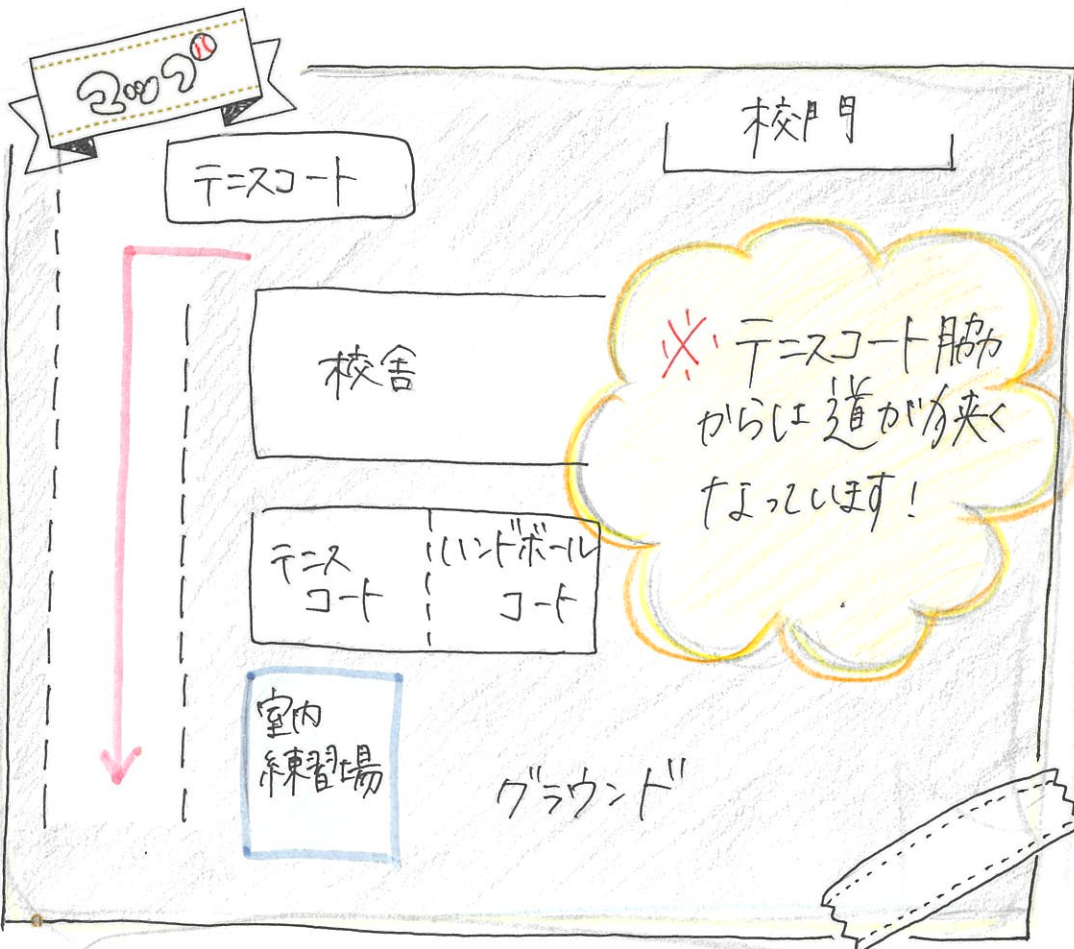 マップ
校門
テニスコート
校舎
※テニスコート脇
からは道が狭く
なっています!
テニス
コート
ハンドボール
コート
室内
練習場
グラウンド